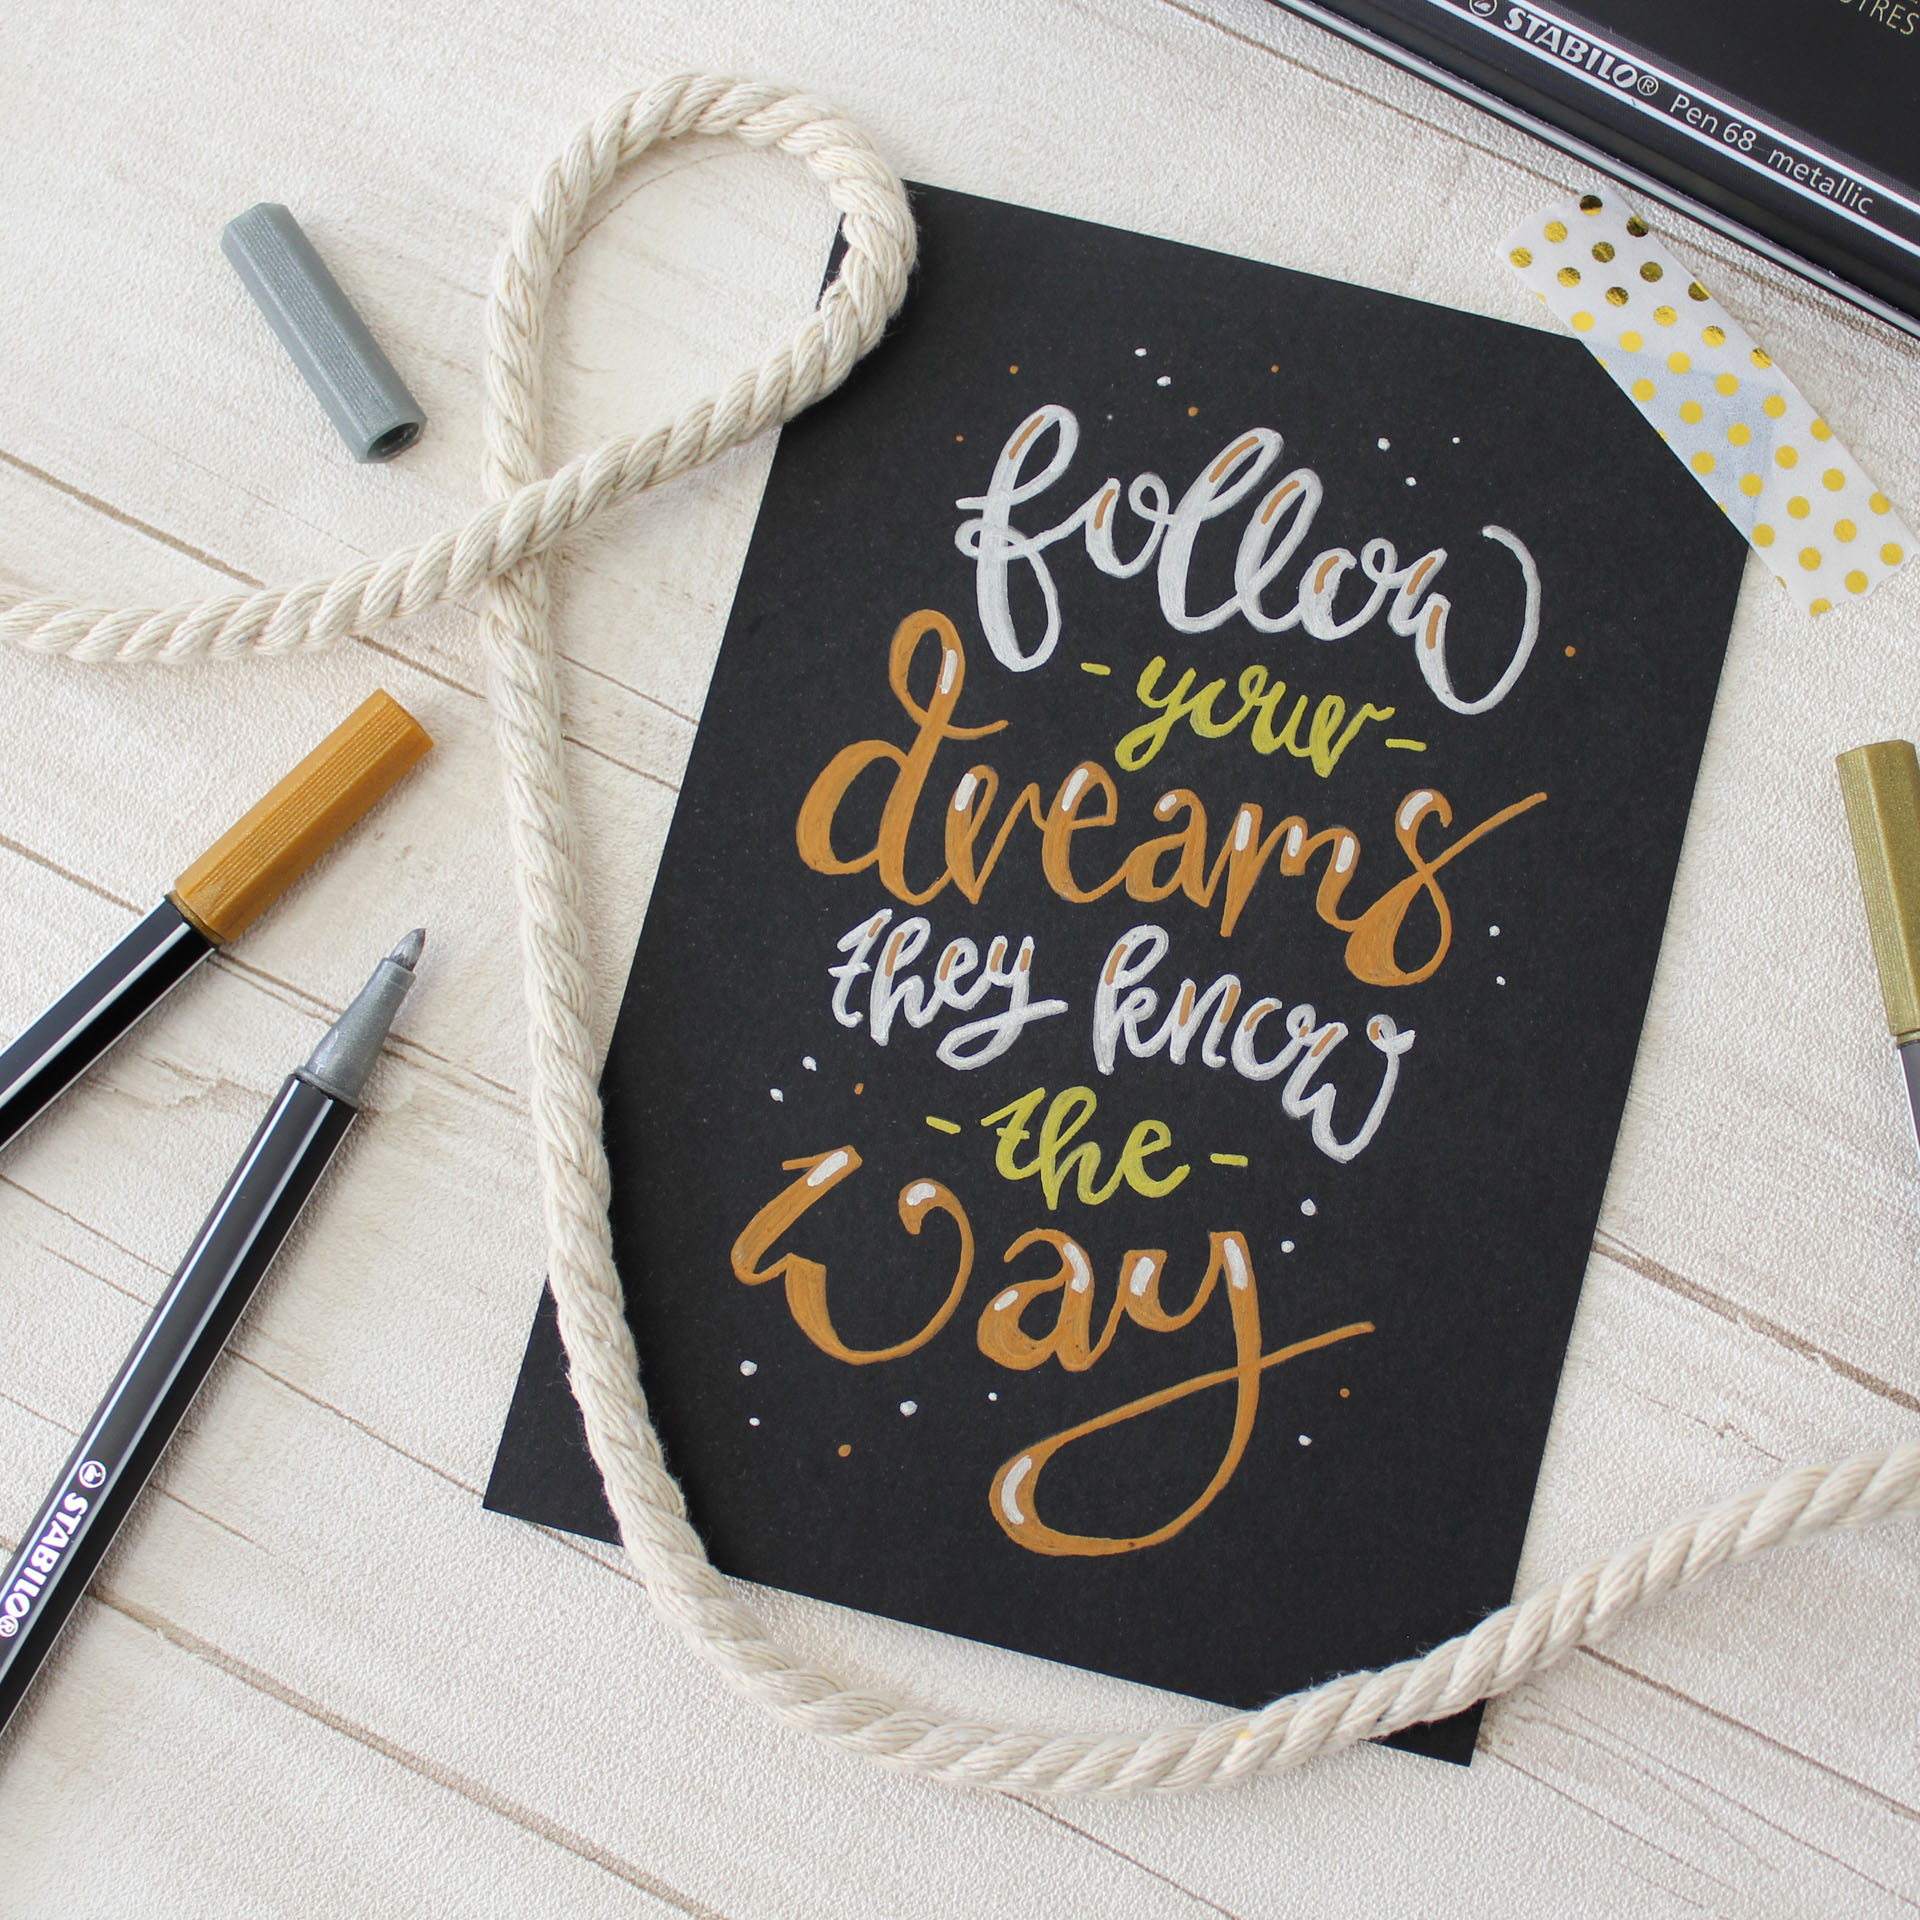 STABILO® Pen 68 metallic
follow
- your -
dreams
they know
- the -
way
STABILO®